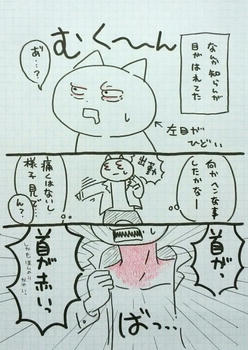 なんか知らんが
目がはれてた
むく〜ん
あ゛…?
左目が
ひどい
何かヘンな事
したかなー
出勤
痛くはないし
様子見で…
ん?
首がっ
ばっ…
首が赤いっ